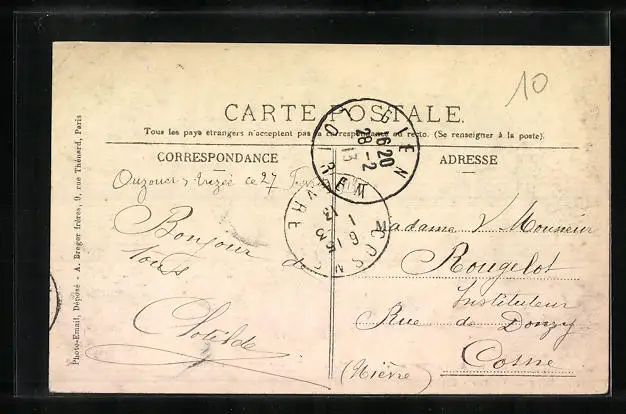 10
CARTE POSTALE.
Tous les pays étrangers n'acceptent pas la correspondance au recto. (Se renseigner à la poste).
CORRESPONDANCE
ADRESSE
Photo-Email, Déposé - A. Breger frères, 9, rue Thénard, Paris
GIEN
16 20
28 - 2
13
COSNE
1 - 3
13
Ouzouer s/ Trézée ce 27
Bonjour à
tous
Clotilde
Madame & Monsieur
Rougelot
Instituteur
Rue de Donzy
Cosne
(Nièvre)